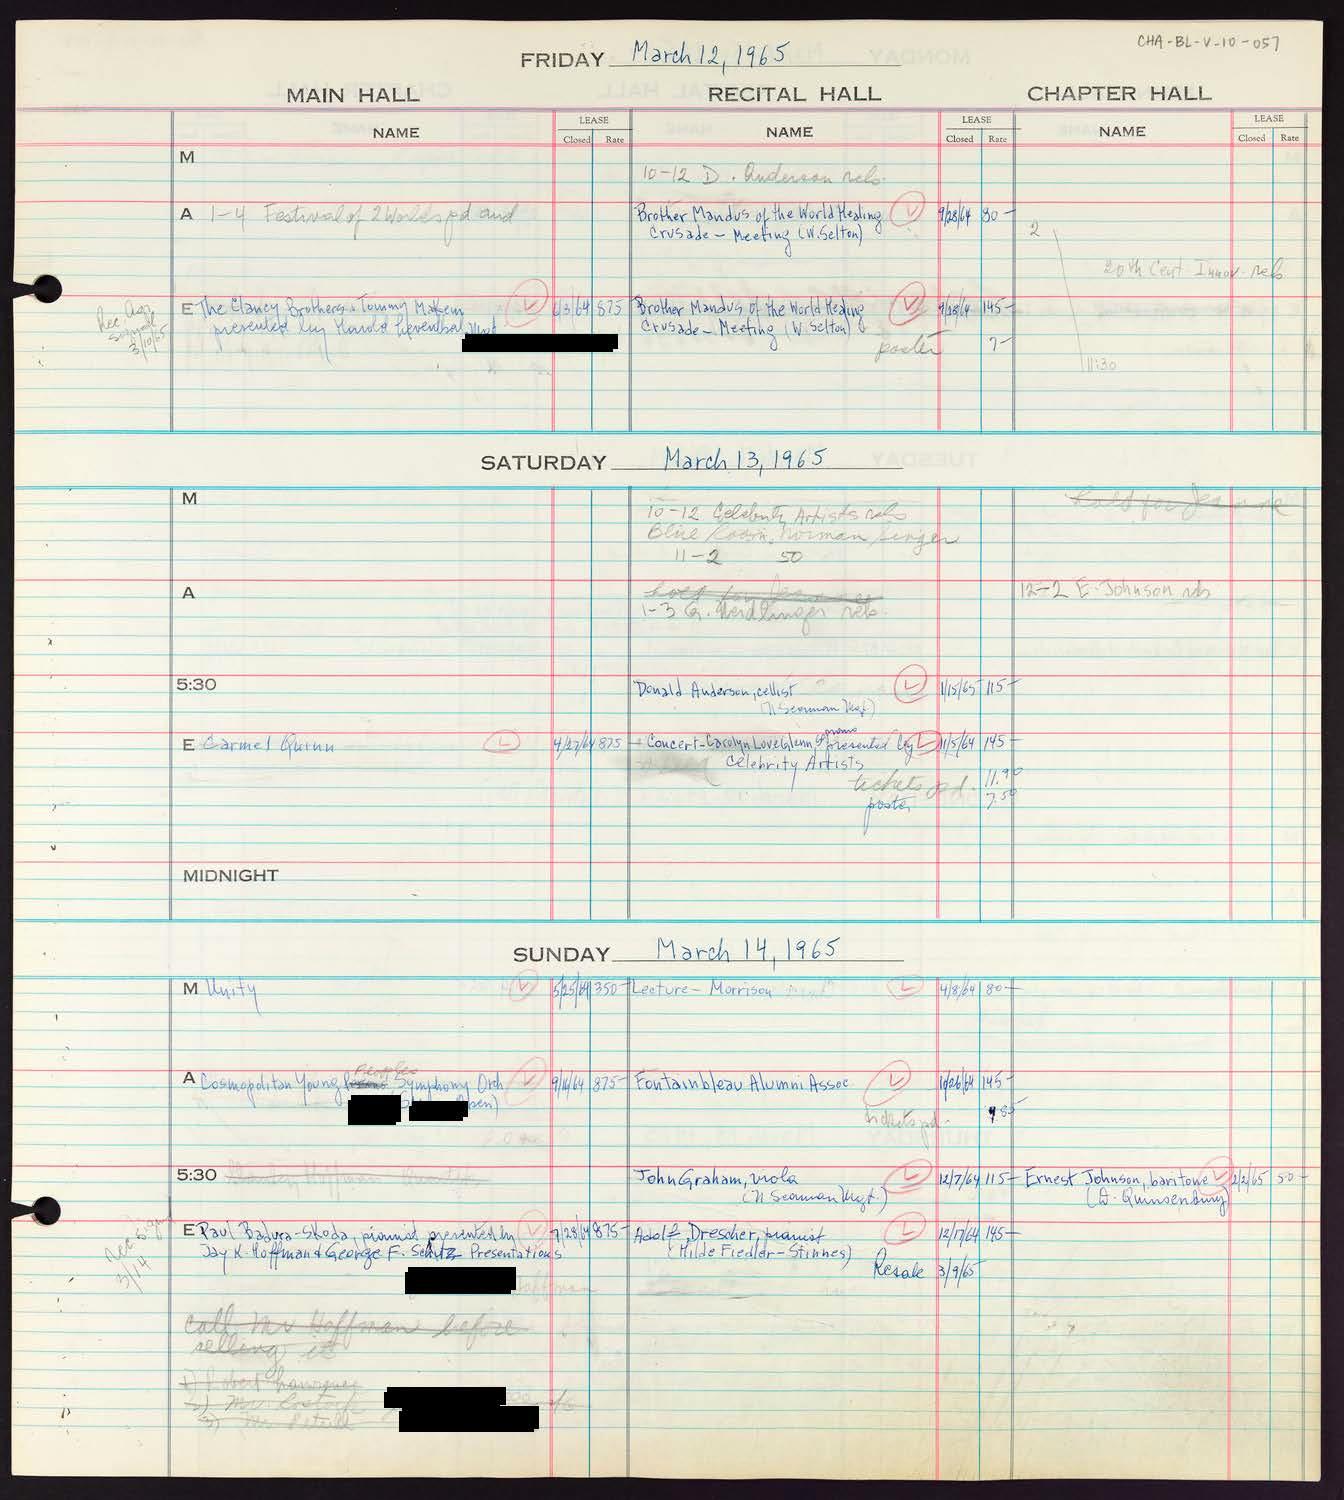 CHA-BL-V-10-057
FRIDAY March 12, 1965
MAIN HALL RECITAL HALL CHAPTER HALL
NAME LEASE Closed Rate NAME LEASE Closed Rate NAME LEASE Closed Rate
M
10-12 D. Anderson reh.
A 1-4 Festival of 2 Worlds pd aud
Brother Mandus of the World Healing 9/28/64 80-
Crusade - Meeting (W. Selton)
2
20th Cent. Innov. reh
11:30
Rec. Agr.
signed
3/10/65
E The Clancy Brothers & Tommy Makem 6/3/64 875
presented by Harold Leventhal Mgt
Brother Mandus of the World Healing 9/28/64 145-
Crusade - Meeting (W. Selton)
poster 7-
SATURDAY March 13, 1965
M
10-12 Celebrity Artists reh
Blue Room, Norman Singer
11-2 50
hold for Jeanne
A
hold for Jeanne
1-3 G. reh.
12-2 E. Johnson reh
5:30
Donald Anderson, cellist 1/15/65 115-
(N Seaman Mgt.)
E Carmel Quinn 4/27/64 875
Concert - Carolyn LoveGlenn, soprano presented by 11/5/64 145-
Celebrity Artists
tickets pd. 11.90
poster 7.50
MIDNIGHT
SUNDAY March 14, 1965
M Unity 5/25/64 350-
Lecture - Morrison 4/8/64 80-
A Cosmopolitan Young Peoples Symphony Orch 9/16/64 875-
Fontainbleau Alumni Assoc 10/26/64 145-
tickets pd.
5:30 Stanley Hoffman Quartet
John Graham, viola 12/7/64 115-
(N Seaman Mgt.)
Ernest Johnson, baritone 2/2/65 50-
(D. Quinsenbury)
Rec. signed
3/14
E Paul Badura-Skoda, pianist presented by 7/28/64 875-
Jay K. Hoffman & George F. Schutz Presentations
Adolf Drescher, pianist 12/17/64 145-
(Hilde Fiedler-Stinnes)
Resale 3/9/65
Hoffman
call Mr Hoffman before
selling it
1) Robert
2) Mr.
3) Mr.